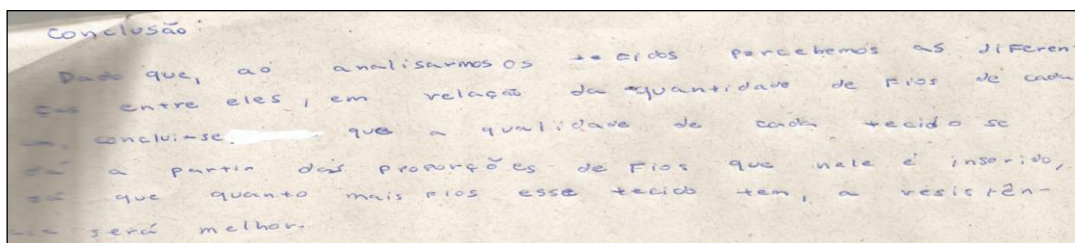 Conclusão:
Dado que, ao analisarmos os tecidos percebemos as diferen-
ças entre eles, em relação da quantidade de fios de cada
um, conclui-se que a qualidade de cada tecido se
dá a partir das proporções de fios que nele é inserido,
já que quanto mais fios esse tecido tem, a resistên-
cia será melhor.